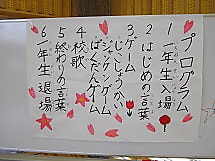 プログラム
1 一年生入場
2 はじめの言葉
3 ゲーム
じこしょうかい
ジャンケンゲーム
ばくだんゲーム
4 校歌
5 終わりの言葉
6 一年生退場